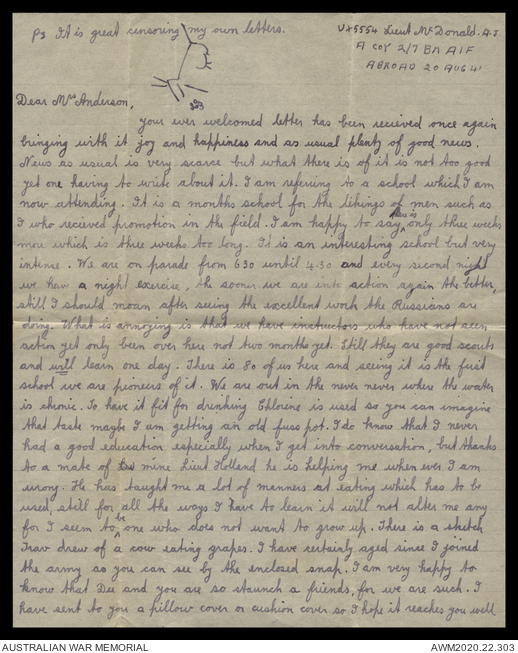 Ps It is great censoring my own letters.
VX5554 Lieut McDonald. A.J.
A COY 2/7 BN AIF
ABROAD 20 AUG 41
Dear Mrs Anderson,
your ever welcomed letter has been recieved once again
bringing with it joy and happiness and as usual plenty of good news.
News as usual is very scarce but what there is of it is not too good
yet one having to write about it. I am referring to a school which I am
now attending. It is a months school for the likings of men such as
I who recieved promotion in the field. I am happy to say there is only three weeks
more which is three weeks too long. It is an interesting school but very
intense. We are on parade from 630 until 4.30 and every second night
we have a night exercise, the sooner we are into action again the better,
still I should moan after seeing the excellent work the Russians are
doing. What is annoying is that we have instructors who have not seen
action yet only been over here not two months yet. Still they are good scouts
and will learn one day. There is 80 of us here and seeing it is the first
school we are pioneers of it. We are out in the never never where the water
is chronic. To have it fit for drinking Chlorine is used so you can imagine
that taste maybe I am getting an old fuss pot. I do know that I never
had a good education especially when I get into conversation, but thanks
to a mate of mine Lieut Holland he is helping me when ever I am
wrong. He has taught me a lot of manners at eating which has to be
used, still for all the ways I have to learn it will not alter me any
for I seem to be one who does not want to grow up. There is a sketch
Trav drew of a cow eating grapes. I have certainly aged since I joined
the army as you can see by the enclosed snap. I am very happy to
know that Dee and you are so staunch a friends, for we are such. I
have sent to you a pillow cover or cushion cover so I hope it reaches you well
AUSTRALIAN WAR MEMORIAL
AWM2020.22.303